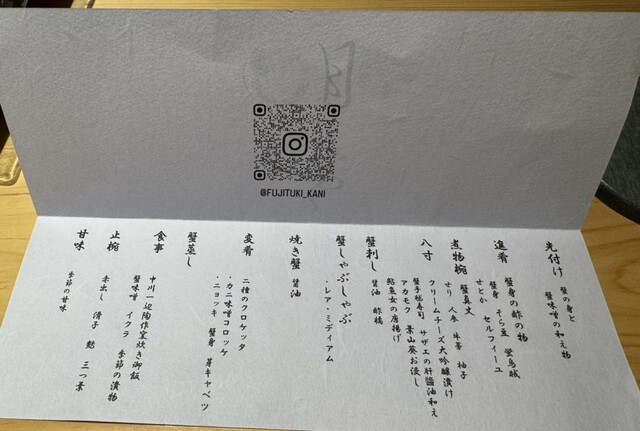 @FUJITUKI_KANI
先付け
蟹の身と
蟹味噌の和え物
進肴
蟹身の酢の物
蟹身 そら豆 蛍烏賊
せとか セルフィーユ
煮物椀
蟹真丈
せり 人参 牛蒡 柚子
八寸
クリームチーズ大吟醸漬け
蟹手毬寿司 サザエの肝醤油和え
アカモク 葉山葵お浸し
鮎魚女の唐揚げ
蟹刺し
醤油 酢橘
蟹しゃぶしゃぶ
・レア・ミディアム
焼き蟹
醤油
変肴
二種のクロケッタ
・カニ味噌コロッケ
・ニョッキ 蟹身 芽キャベツ
蟹蒸し
食事
中川一辺陶作窯炊き御飯
蟹味噌 イクラ 季節の漬物
止椀
赤出し 滑子 麩 三つ葉
甘味
季節の甘味